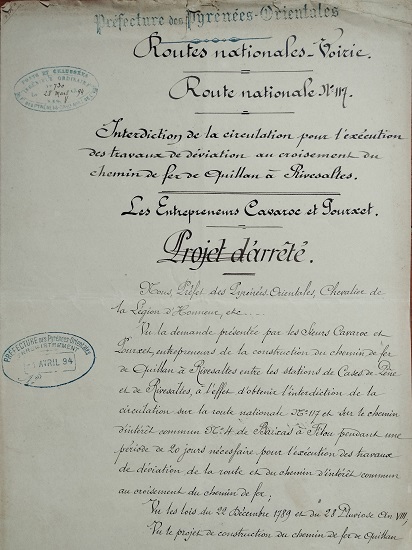 Préfecture des Pyrénées-Orientales
Routes nationales-Voirie.
Route nationale N° 117.
Interdiction de la circulation pour l'exécution
des travaux de déviation au croisement du
chemin de fer de Quillan à Rivesaltes.
Les Entrepreneurs Cavaroc et Pourxet.
Projet d'arrêté.
Nous, Préfet des Pyrénées-Orientales, Chevalier de
la Légion d'Honneur, etc....
Vu la demande présentée par les Sieurs Cavaroc et
Pourxet, entrepreneurs de la construction du chemin de fer
de Quillan à Rivesaltes entre les stations de Cases de Pène
et de Rivesaltes, à l'effet d'obtenir l'interdiction de la
circulation sur la route nationale N° 117 et sur le chemin
d'intérêt commun N° 4 de Baixas à Fitou pendant une
période de 20 jours nécessaire pour l'exécution des travaux
de déviation de la route et du chemin d'intérêt commun
au croisement du chemin de fer;
Vu les lois du 22 Décembre 1789 et du 28 Pluviose An VIII;
Vu le projet de construction du chemin de fer de Quillan
PONTS ET CHAUSSÉES
PRÉFECTURE des Pyrénées-Orientales
AVRIL 94